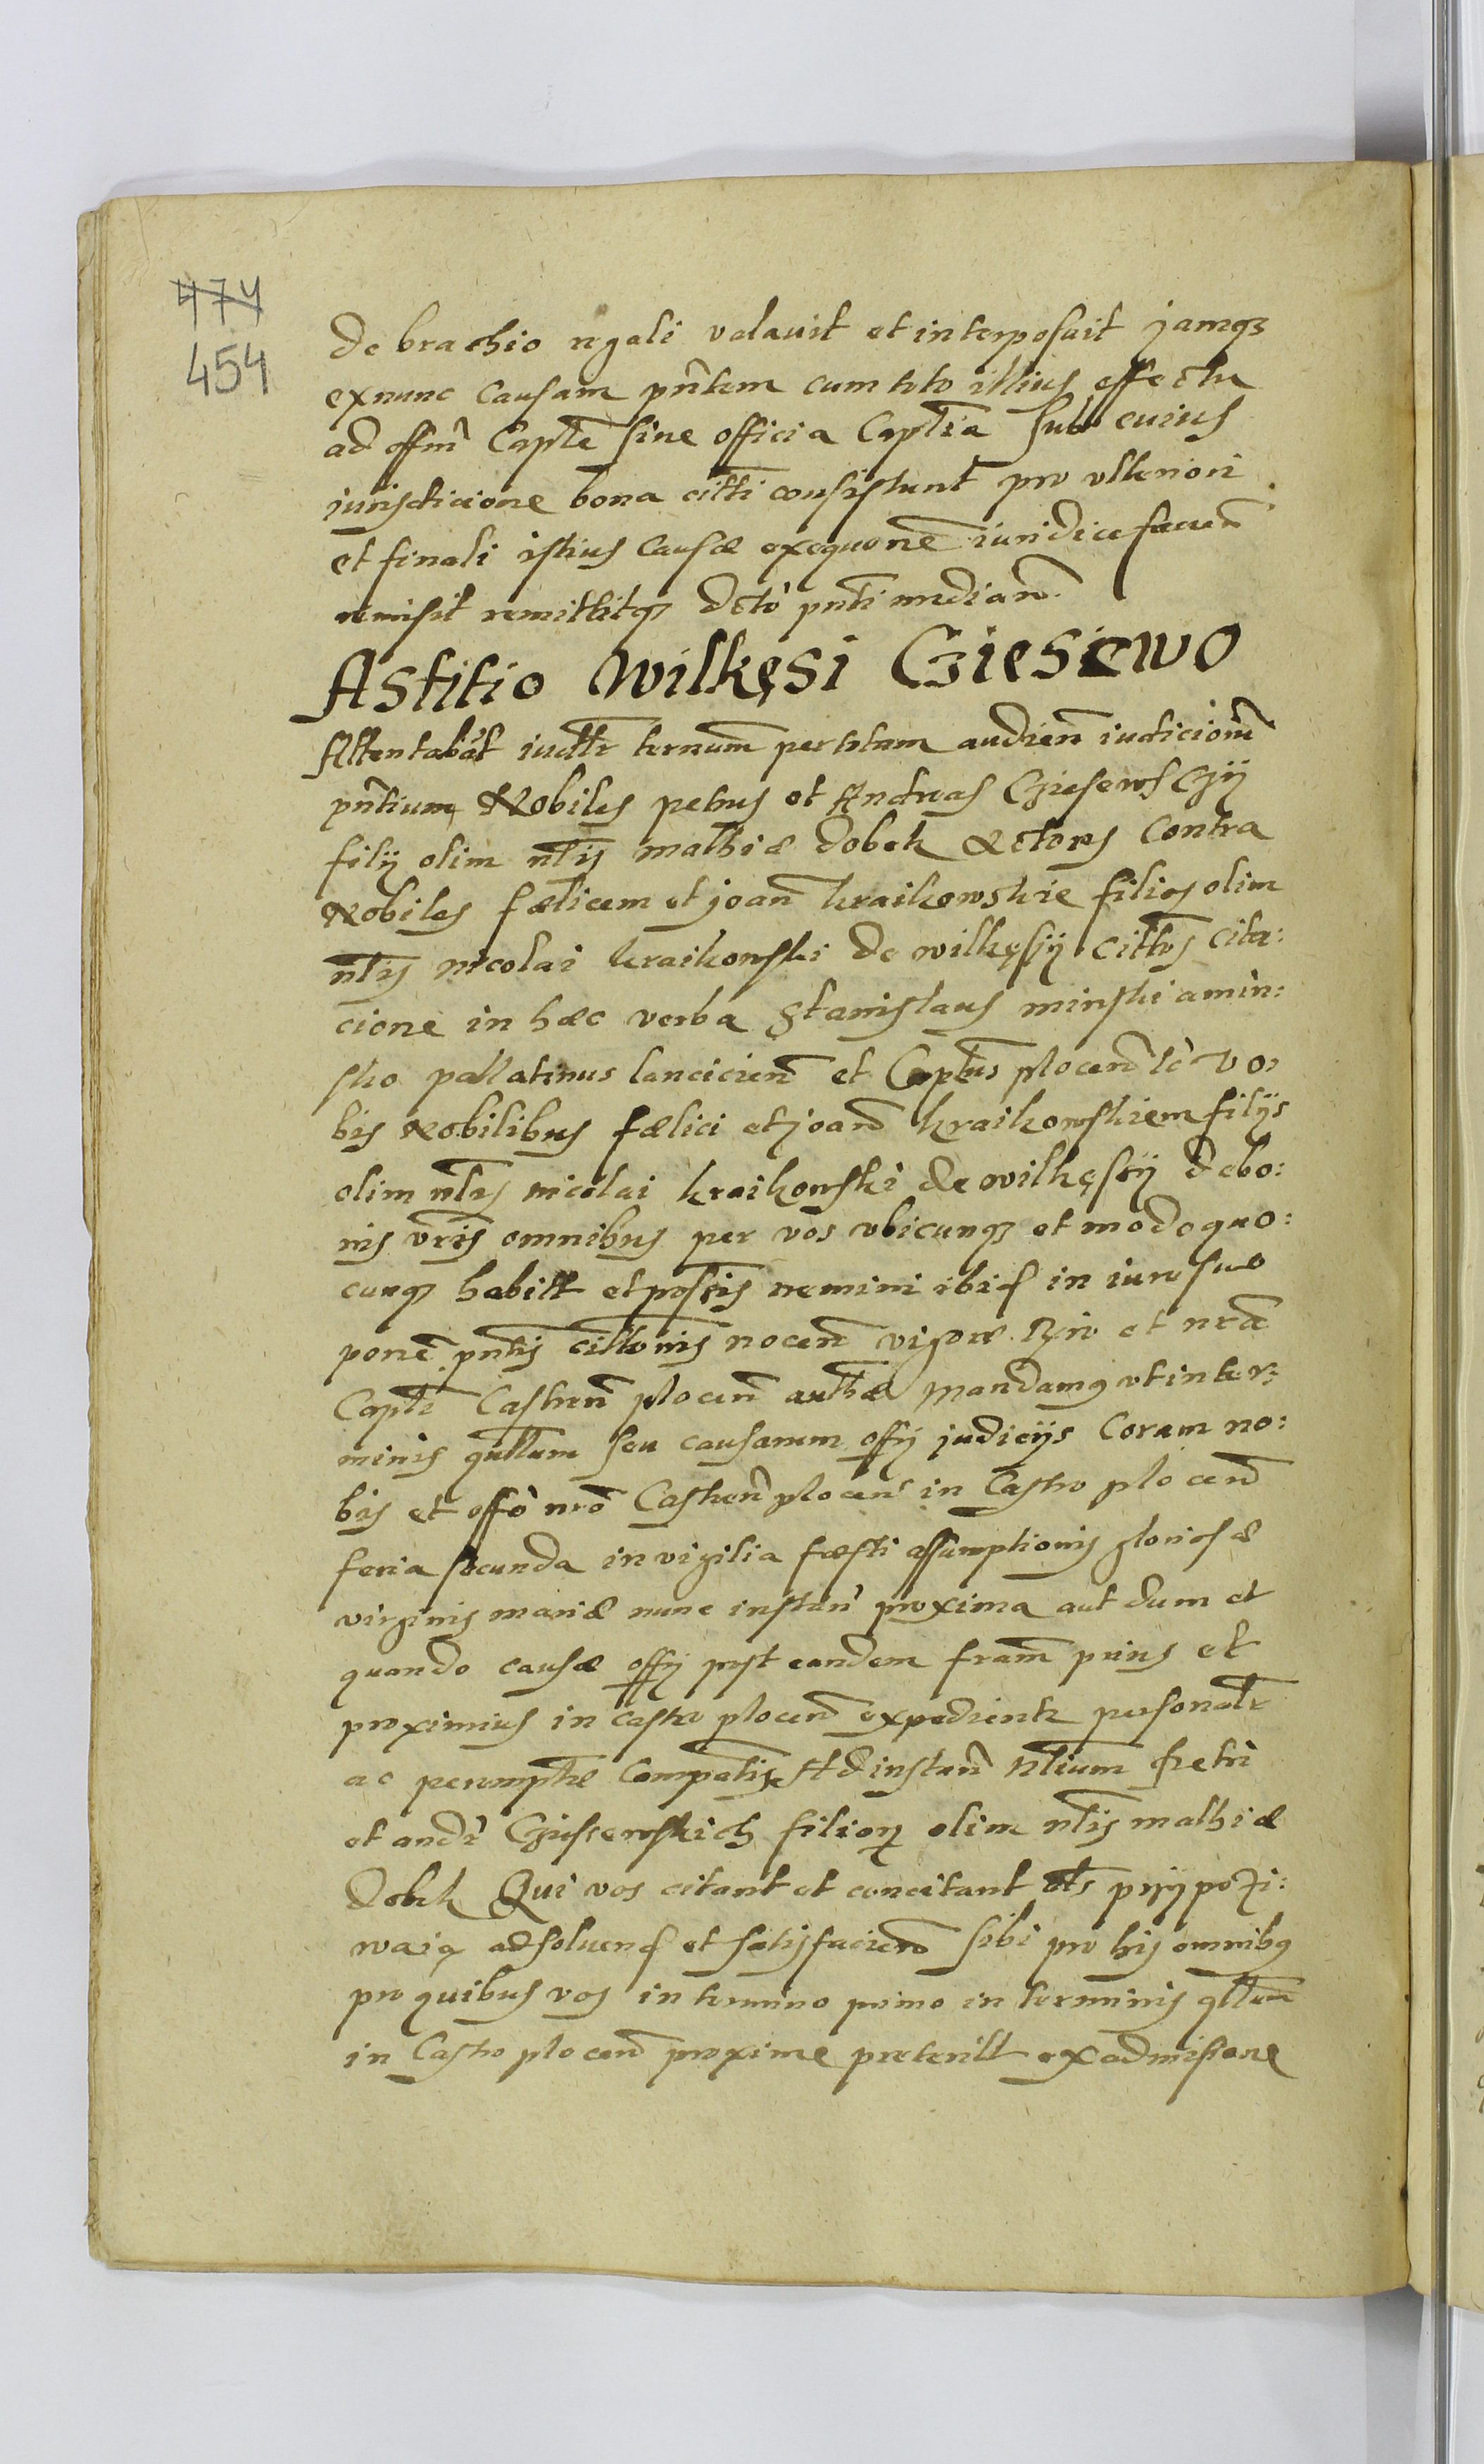 474
454
de brachio regali valauit et interposuit jamqz
exnunc Causam pñtem cum toto illius effectu
ad offm̃ Captle siue officia Captlia Sub cuius
jurisdicione bona citti consistunt pro vlteriori
et finali istius Causæ exequone iuridice facien
remisit remittitqz dcto pnti mediañ.
Astitio Wilkęsi Giesiewo
Attentabãt iudtr ternum per totam audien iudiciom̃
pñtium Nobiles petrus et Andreas Giesewsczÿ
filÿ olim ntis mathiæ dobek Actores Contra
Nobiles fælicem et joañ kraikowskie filios olim
ntis nicolai kraikowski de wilkęsÿ cittos cita:
cione in hæc verba Stanislaus minski a min:
sko pallatinus lancicien et Captus plocen tc̃ vo:
bis Nobilibus fælici et joañ kraikowskiem filÿs
olim ntis nicolai kraikowski de wilkęsÿ de bo:
nis vris omnibus per vos vbicunqz et modoquo:
cunqz habitt et possis nemini ibiq in iure suo
poneñ pntis cittonis nocen vigore et nrã
Captle Castren plocen authæ Mandamus vt inter:
minis qullum seu causarum offÿ judicÿs Coram no:
bis et offo nrõ Castren plocen in Castro plocen
feria secunda in vigilia fæsti assumptionis gloriosæ
virginis mariæ nunc instan proxima aut dum et
quando causæ offÿ post eandem fram prius et
proximius in castro plocen expedientr personalr
ac peremptiæ Compatis Ad instan ntlium petri
et andr̃ Giessewskich filiorz olim ntis mathiæ
dobek Qui vos citant et concitant prÿpozi:
waiąc ad soluend et satisfacien sibi pro his omnibus
pro quibus vos in termino primo in terminis qllum
in Castro plocen proxime preteritt ex admissione